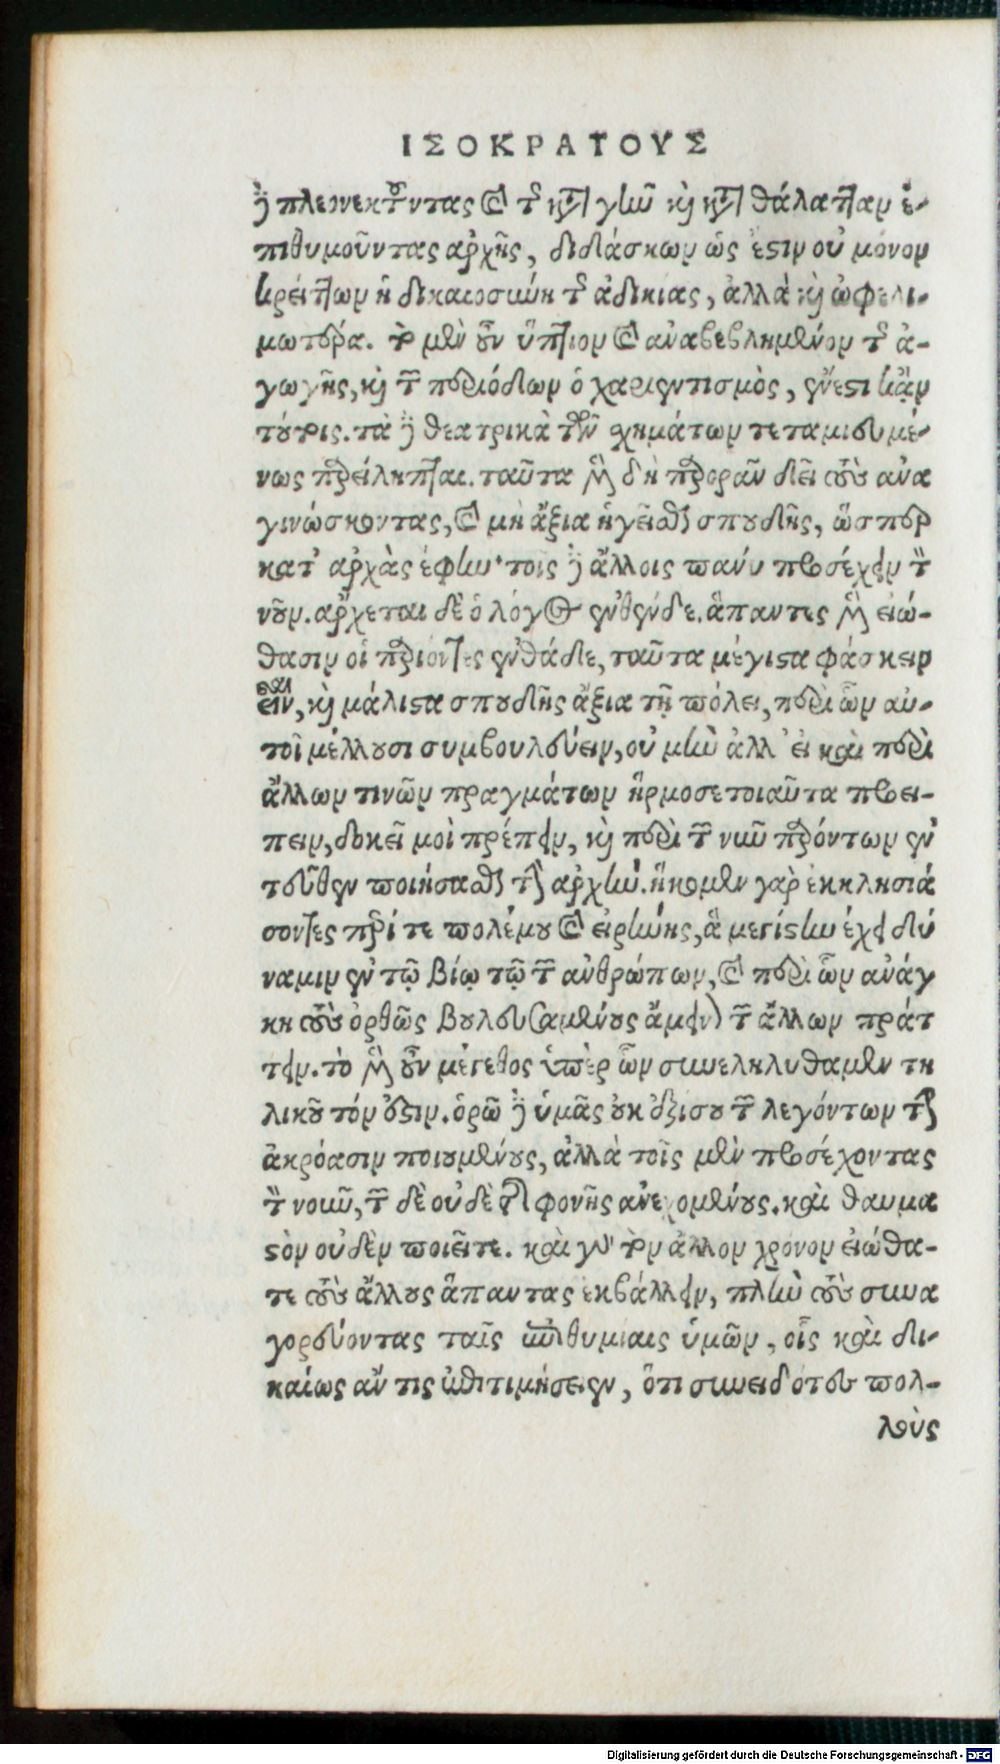 ΙΣΟΚΡΑΤΟΥΣ
δὲ πλεονεκτοῦντας καὶ τῆς κατὰ γῆν καὶ κατὰ θάλατταν ἐ-
πιθυμοῦντας ἀρχῆς, διδάσκων ὡς ἔστιν οὐ μόνον
κρείττων ἡ δικαιοσύνη τῆς ἀδικίας, ἀλλὰ καὶ ὠφελι-
μωτέρα. τὸ μὲν οὖν ὕπτιον καὶ ἀναβεβλημένον τῆς ἀ-
γωγῆς, καὶ τῶν περιόδων ὁ χαριεντισμὸς, ἔνεστι κἂν
τούτοις. τὰ δὲ θεατρικὰ τῶν σχημάτων τεταμιευμέ-
νως παρείληπται. ταῦτα μὲν δὴ παρορᾶν δεῖ τοὺς ἀνα
γινώσκοντας, καὶ μὴ ἄξια ἡγεῖσθαι σπουδῆς, ὥσπερ
κατ' ἀρχὰς ἔφην· τοῖς δὲ ἄλλοις πάνυ προσέχειν τὸν
νοῦν. ἄρχεται δὲ ὁ λόγος ἐνθένδε. ἅπαντες μὲν εἰώ-
θασιν οἱ παριόντες ἐνθάδε, ταῦτα μέγιστα φάσκειν
εἶναι, καὶ μάλιστα σπουδῆς ἄξια τῇ πόλει, περὶ ὧν αὐ-
τοὶ μέλλουσι συμβουλεύειν, οὐ μὴν ἀλλ' εἰ καὶ περὶ
ἄλλων τινῶν πραγμάτων ἥρμοσε τοιαῦτα προει-
πεῖν, δοκεῖ μοὶ πρέπειν, καὶ περὶ τῶν νῦν παρόντων ἐν
τεῦθεν ποιήσασθαι τὴν ἀρχήν. ἥκομεν γὰρ ἐκκλησιά
σοντες περί τε πολέμου καὶ εἰρήνης, ἃ μεγίστην ἔχει δύ
ναμιν ἐν τῷ βίῳ τῷ τῶν ἀνθρώπων, καὶ περὶ ὧν ἀνάγ
κη τοὺς ὀρθῶς βουλευσαμένους ἄμεινον τῶν ἄλλων πράτ
τειν. τὸ μὲν οὖν μέγεθος ὑπὲρ ὧν συνεληλύθαμεν τη
λικοῦτόν ἐστιν. ὁρῶ δὲ ὑμᾶς οὐκ ἐξίσου τῶν λεγόντων τὴν
ἀκρόασιν ποιουμένους, ἀλλὰ τοῖς μὲν προσέχοντας
τὸν νοῦν, τῶν δὲ οὐδὲ τῆς φονῆς ἀνεχομένους. καὶ θαυμα
στὸν οὐδὲν ποιεῖτε. καὶ γὰρ τὸν ἄλλον χρόνον εἰώθα-
τε τοὺς ἄλλους ἅπαντας ἐκβάλλειν, πλὴν τοὺς συνα
γορεύοντας ταῖς ἐπιθυμίαις ὑμῶν, οἷς καὶ δι-
καίως ἄν τις ἐπιτιμήσειεν, ὅτι συνειδότες πολ-
λοὺς
Digitalisierung gefördert durch die Deutsche Forschungsgemeinschaft - DFG